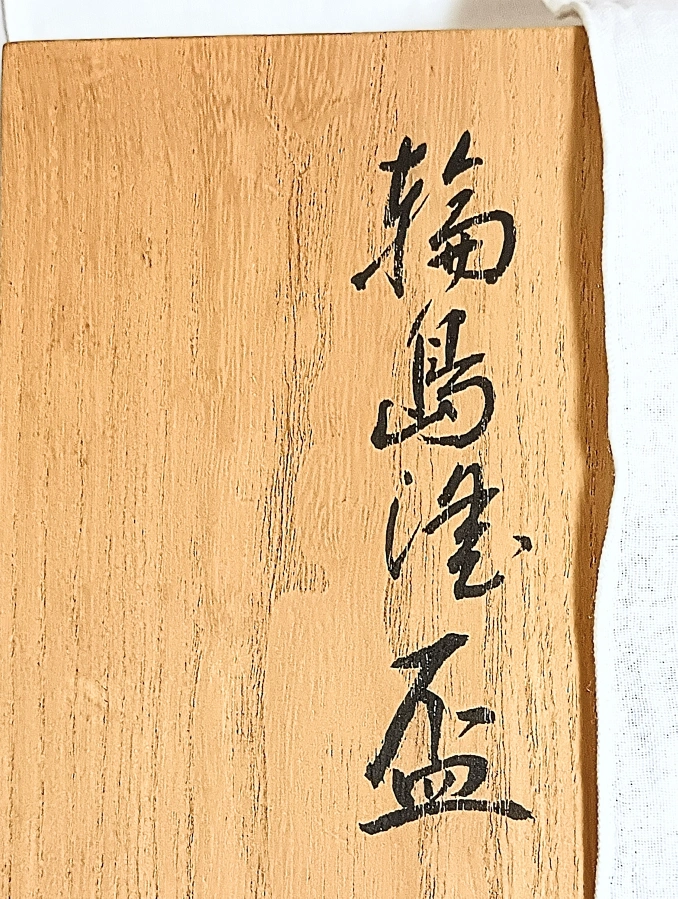 輪島塗盃